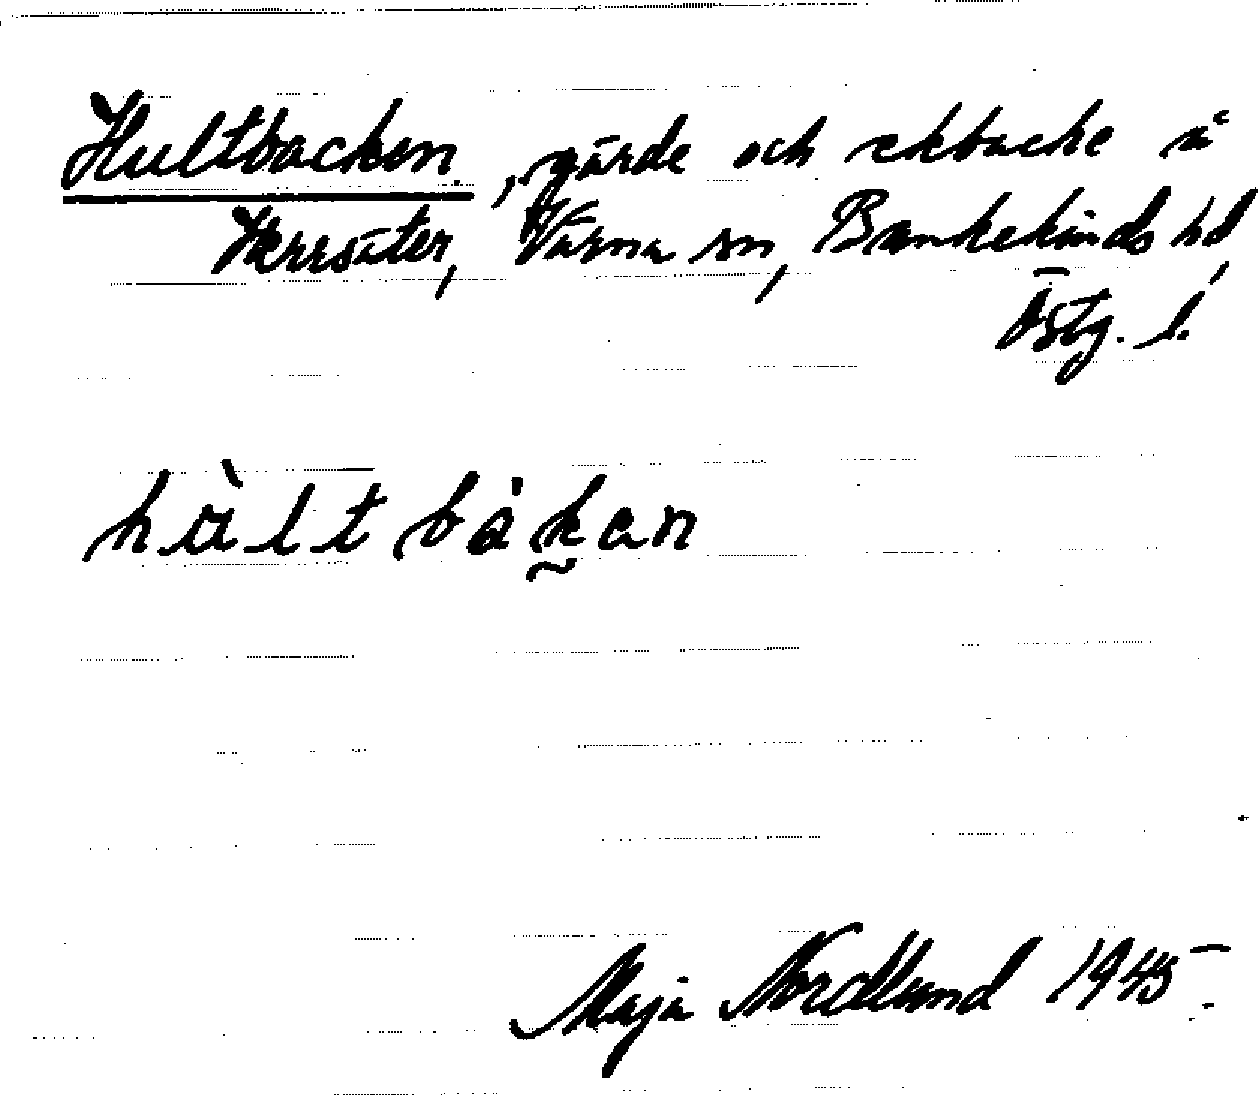 Hultbacken, gärde och ekbacke å
Herrsäter, Värna sn, Bankekinds hd,
Östg. l.
hùltbàk̰an
Maja Nordlund 1945.